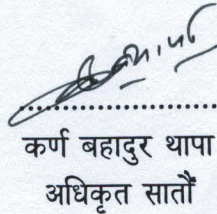 कर्ण बहादुर थापा
अधिकृत सातौं